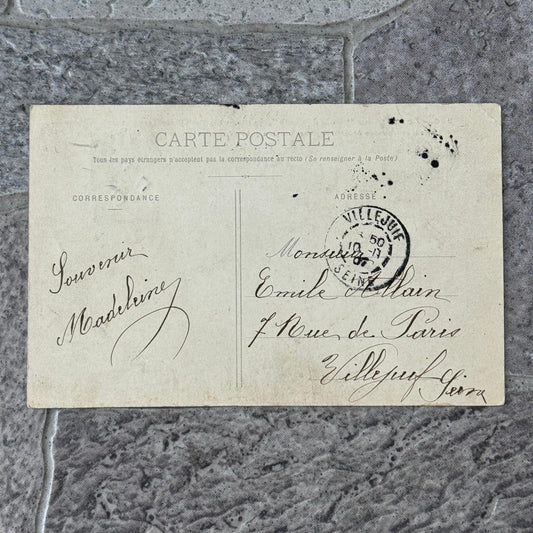 CARTE POSTALE
Tous les pays étrangers n'acceptent pas la correspondance au recto (Se renseigner à la Poste)
CORRESPONDANCE
ADRESSE
Souvenir
Madeleine
Monsieur
Emile Allain
7 Rue de Paris
Villejuif Seine
VILLEJUIF
SEINE